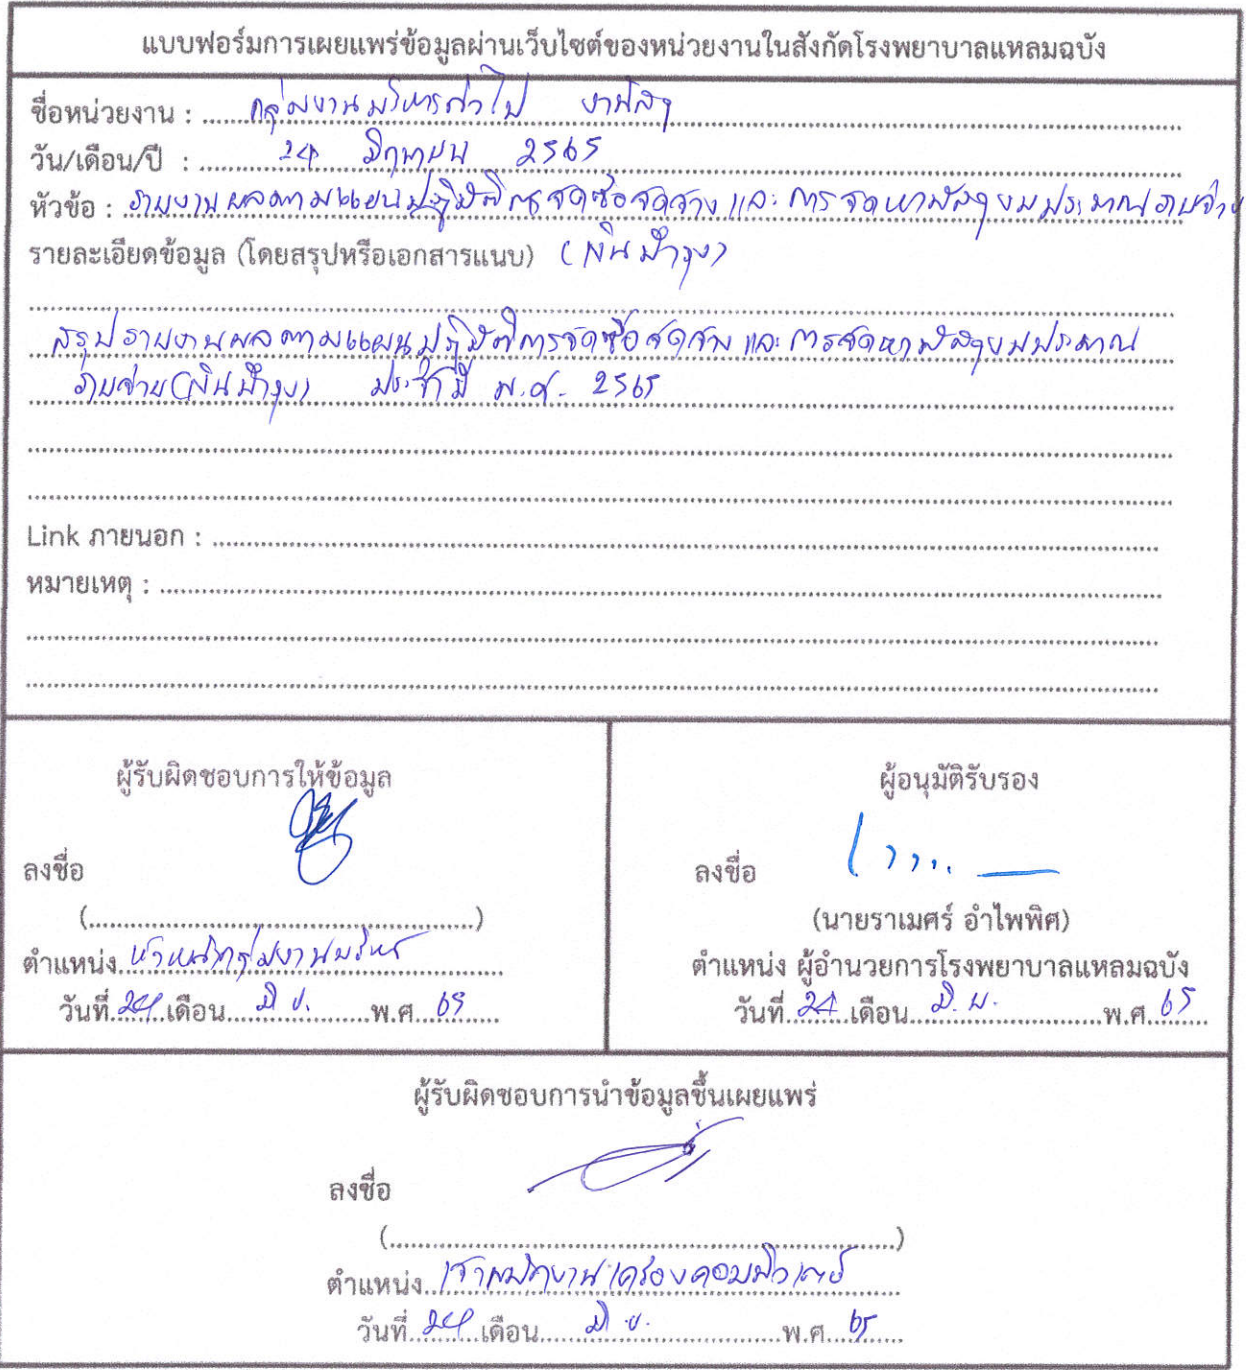 แบบฟอร์มการเผยแพร่ข้อมูลผ่านเว็บไซต์ของหน่วยงานในสังกัดโรงพยาบาลแหลมฉบัง
ชื่อหน่วยงาน : กลุ่มงานบริหารทั่วไป งานพัสดุ
วัน/เดือน/ปี : 24 มิถุนายน 2565
หัวข้อ : รายงานผลตามแผนปฏิบัติการจัดซื้อจัดจ้าง และ การจัดหาพัสดุงบประมาณรายจ่าย
รายละเอียดข้อมูล (โดยสรุปหรือเอกสารแนบ) (เงินบำรุง)
สรุปรายงานผลตามแผนปฏิบัติการจัดซื้อจัดจ้าง และ การจัดหาพัสดุงบประมาณ
รายจ่าย (เงินบำรุง) ประจำปี พ.ศ. 2565
Link ภายนอก :
หมายเหตุ :
ผู้รับผิดชอบการให้ข้อมูล
ลงชื่อ
(..........)
ตำแหน่ง หัวหน้ากลุ่มงานบริหาร
วันที่ 24 เดือน มิ.ย. พ.ศ. 65
ผู้อนุมัติรับรอง
ลงชื่อ
(นายราเมศร์ อำไพพิศ)
ตำแหน่ง ผู้อำนวยการโรงพยาบาลแหลมฉบัง
วันที่ 24 เดือน มิ.ย. พ.ศ. 65
ผู้รับผิดชอบการนำข้อมูลขึ้นเผยแพร่
ลงชื่อ
(..........)
ตำแหน่ง เจ้าพนักงานเครื่องคอมพิวเตอร์
วันที่ 24 เดือน มิ.ย. พ.ศ. 65